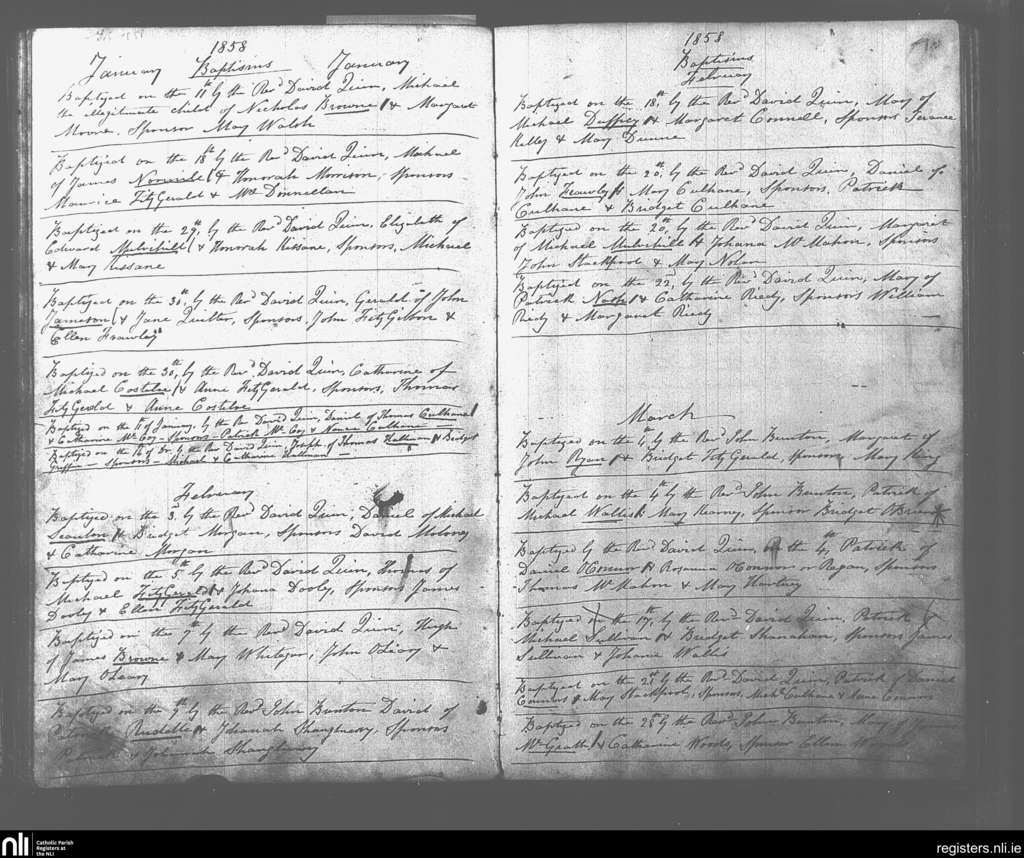 1858
January Baptisms January
Baptized on the 11th by the Revd David Quin, Michael
the illegitimate child of Nicholas Browne & Margaret
Moore. Sponsor May Walsh
Baptized on the 18th by the Revd David Quin, Michael
of James & Honorah Morrison, Sponsors
Maurice FitzGerald & Donnellan
Baptized on the 29th, by the Revd David Quin, Elizabeth of
Edward Mulvihill & Honorah Kissane, Sponsors, Michael
& May Kissane
Baptized on the 30th, by the Revd David Quin, Gerald of John
Jameson & Jane Quilter, Sponsors, John FitzGibbon &
Ellen Frawley
Baptized on the 30th, by the Revd David Quin, Catharine of
Michael Costiloe & Anne FitzGerald, Sponsors, Thomas
FitzGerald & Anne Costiloe
Baptized on the of January, by the Rev David Quin, Daniel of Thomas Culhane
& Catharine Mc Coy - Sponsors - Patrick Mc Coy & Culhane
Baptized on the 16 of Do. by the Rev David Quin, Joseph of Thomas & Bridget
Griffin - Sponsors - Michael & Catharine
February
Baptized on the 3d, by the Revd David Quin, Daniel of Michael
Scanlon & Bridget Morgan, Sponsors David Molony
& Catharine Morgan
Baptized on the 5th by the Revd David Quin, Thomas of
Michael FitzGerald & Johana Dooly, Sponsors James
Dooly & Ellen FitzGerald
Baptized on the 7th by the Revd David Quin, Hugh
of James Browne & May John OLeary &
May OLeary
Baptized on the by the Revd John Bunton David of
Ruddle & Johanah Shaughnesy. Sponsors
& Johanah Shaughnesy
1858
Baptisms
February
Baptized on the 18th, by the Revd David Quin, May of
Michael Duffrey & Margaret Connell, Sponsors Terance
Kelly & May Dunne
Baptized on the 20th, by the Revd David Quin, Daniel of
John Frawley & May Culhane, Sponsors, Patrick
Culhane & Bridget Culhane
Baptized on the 20, by the Revd David Quin, Margaret
of Michael Mulvihill & Johana Mc Mahon, Sponsors
John Stackpool & May Nolan
Baptized on the 22d, by the Revd David Quin, May of
Patrick Nash & Catharine Reidy, Sponsors William
Reidy & Margaret Reidy
March
Baptized on the 4th, by the Revd John Bunton, Margaret of
John Ryan & Bridget FitzGerald, Sponsor May King
Baptized on the 4th by the Revd John Bunton, Patrick of
Michael Wallis & May Kearney, Sponsor Bridget OBrien
Baptized by the Revd David Quin, on the 4th, Patrick of
Daniel OConnor & Rosanna OConnor or Ragan, Sponsors
Thomas Mc Mahon & May Hartney
Baptized on the 17th, by the Revd David Quin, Patrick of
Michael Sullivan & Bridget Shanahan, Sponsors James
Sullivan & Johana Wallis
Baptized on the by the Revd David Quin, Patrick of Daniel
Connors & May Stackpool, Sponsors, Michl Culhane & Connors
Baptized on the 28th by the Revd John Bunton, May of
Mc Grath & Catharine Woods, Sponsor Ellen
nli Catholic Parish
Registers at
the NLI
registers.nli.ie